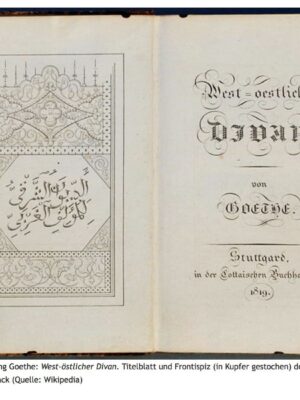 الديوان الشرقي
للمؤلف الغربي
West-oestlich
DIVAN
von
GOETHE.
Stuttgard,
in der Cottaischen Buchha
1819.
ng Goethe: West-östlicher Divan. Titelblatt und Frontispiz (in Kupfer gestochen) de
ck (Quelle: Wikipedia)